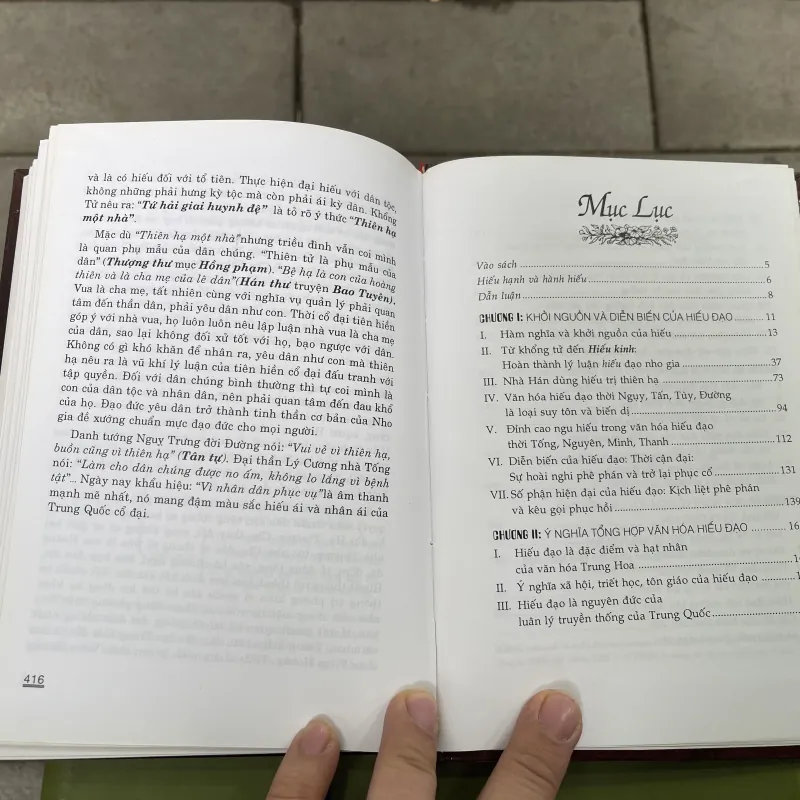 và là có hiếu đối với tổ tiên. Thực hiện đại hiếu với dân tộc,
không những phải hưng kỳ tộc mà còn phải ái kỳ dân. Khổng
Tử nêu ra: “Tứ hải giai huynh đệ” là tỏ rõ ý thức “Thiên hạ
một nhà”.
Mặc dù “Thiên hạ một nhà”nhưng triều đình vẫn coi mình
là quan phụ mẫu của dân chúng. “Thiên tử là phụ mẫu của
dân” (Thượng thư mục Hồng phạm). “Bệ hạ là con của hoàng
thiên và là cha mẹ của lê dân”(Hán thư truyện Bao Tuyên).
Vua là cha mẹ, tất nhiên cùng với nghĩa vụ quản lý phải quan
tâm đến thần dân, phải yêu dân như con. Thời cổ đại tiên hiền
góp ý với nhà vua, họ luôn luôn nêu lập luận nhà vua là cha mẹ
của dân, sao lại không đối xử tốt với họ, bạo ngược với dân.
Không có gì khó khăn để nhận ra, yêu dân như con mà thiên
hạ nêu ra là vũ khí lý luận của tiên hiền cổ đại đấu tranh với
tập quyền. Đối với dân chúng bình thường thì tự coi mình là
con của dân tộc và nhân dân, nên phải quan tâm đến đau khổ
của họ. Đạo đức yêu dân trở thành tinh thần cơ bản của Nho
gia đề xướng chuẩn mực đạo đức cho mọi người.
Danh tướng Ngụy Trưng đời Đường nói: “Vui vẻ vì thiên hạ,
buồn cũng vì thiên hạ” (Tân tự). Đại thần Lý Cương nhà Tống
nói: “Làm cho dân chúng được no ấm, không lo lắng vì bệnh
tật”... Ngày nay khẩu hiệu: “Vì nhân dân phục vụ”là âm thanh
mạnh mẽ nhất, nó mang đậm màu sắc hiếu ái và nhân ái của
Trung Quốc cổ đại.
416
Mục Lục
Vào sách 5
Hiếu hạnh và hành hiếu 6
Dẫn luận 8
CHƯƠNG I: KHỞI NGUỒN VÀ DIỄN BIẾN CỦA HIẾU ĐẠO 11
I. Hàm nghĩa và khởi nguồn của hiếu 13
II. Từ khổng tử đến Hiếu kinh:
Hoàn thành lý luận hiếu đạo nho gia 37
III. Nhà Hán dùng hiếu trị thiên hạ 73
IV. Văn hóa hiếu đạo thời Ngụy, Tấn, Tùy, Đường
là loại suy tôn và biến dị 94
V. Đỉnh cao ngu hiếu trong văn hóa hiếu đạo
thời Tống, Nguyên, Minh, Thanh 112
VI. Diễn biến của hiếu đạo: Thời cận đại:
Sự hoài nghi phê phán và trở lại phục cổ 131
VII. Số phận hiện đại của hiếu đạo: Kịch liệt phê phán
và kêu gọi phục hồi 139
CHƯƠNG II: Ý NGHĨA TỔNG HỢP VĂN HÓA HIẾU ĐẠO 16
I. Hiếu đạo là đặc điểm và hạt nhân
của văn hóa Trung Hoa
II. Ý nghĩa xã hội, triết học, tôn giáo của hiếu đạo
III. Hiếu đạo là nguyên đức của
luân lý truyền thống của Trung Quốc